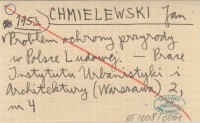 1953 CHMIELEWSKI Jan
Problem ochrony przyrody
w Polsce Ludowej. — Prace
Instytutu Urbanistyki i
Architektury (Warszawa) 2,
nr 4